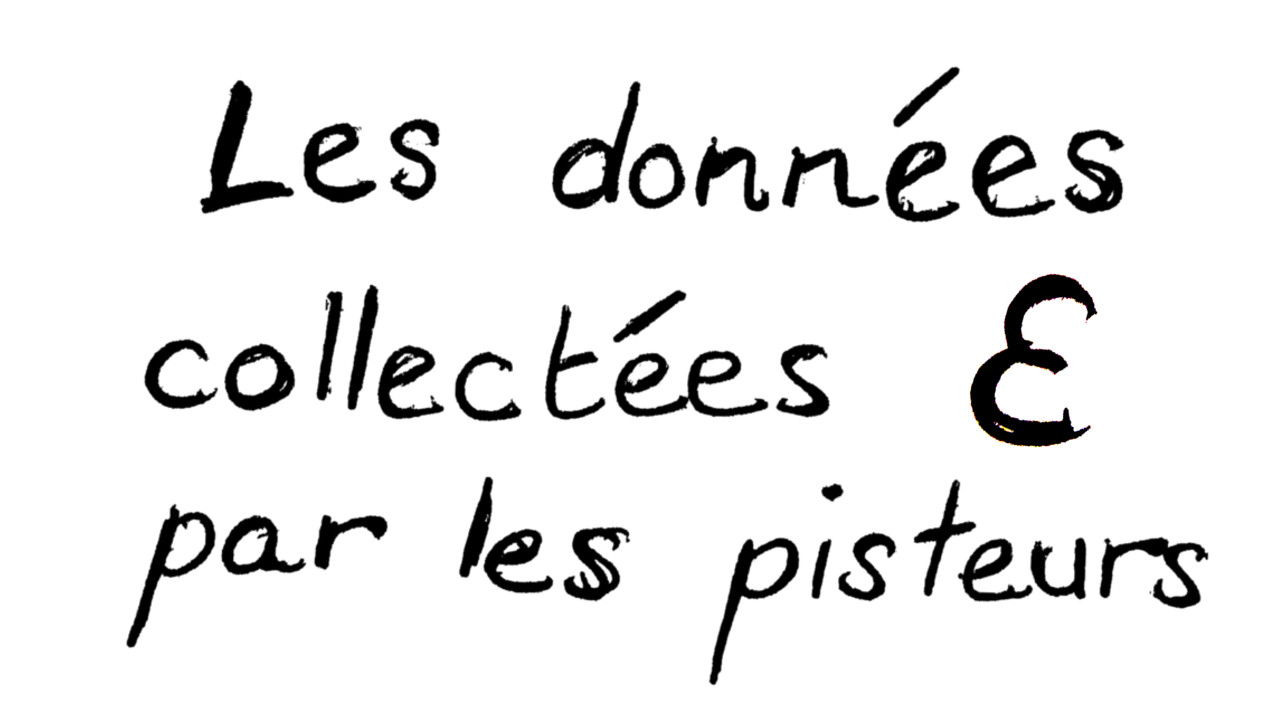 Les données
collectées &
par les pisteurs